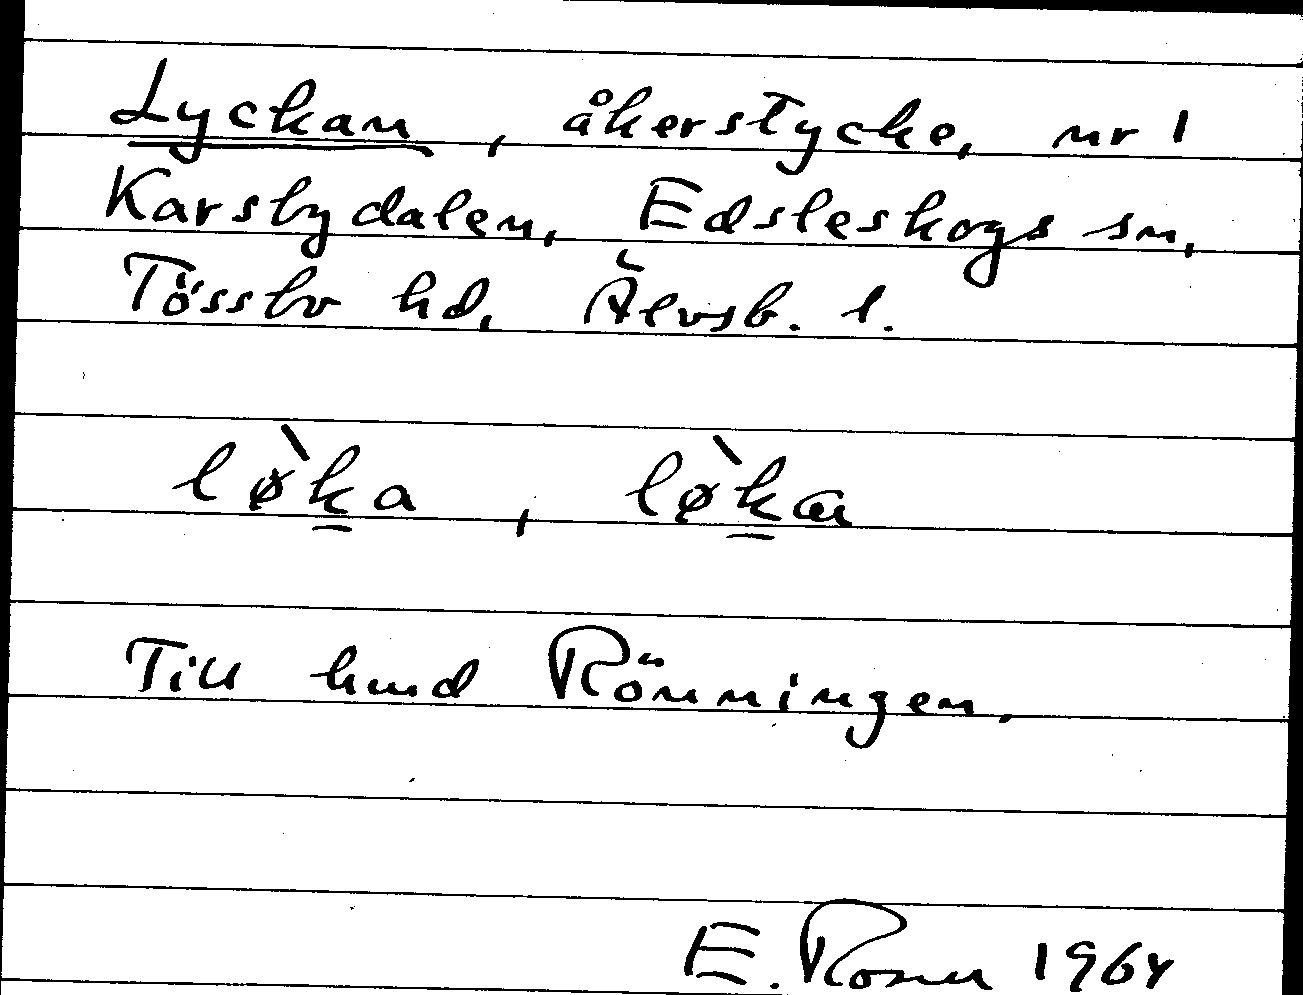 Lyckan, åkerstycke, nr 1
Karsbydalen, Edsleskogs sn,
Tössbo hd, Älvsb. l.
lø̀ka, lø̀ka
Till hmd Rönningen.
E. Rosen 1964